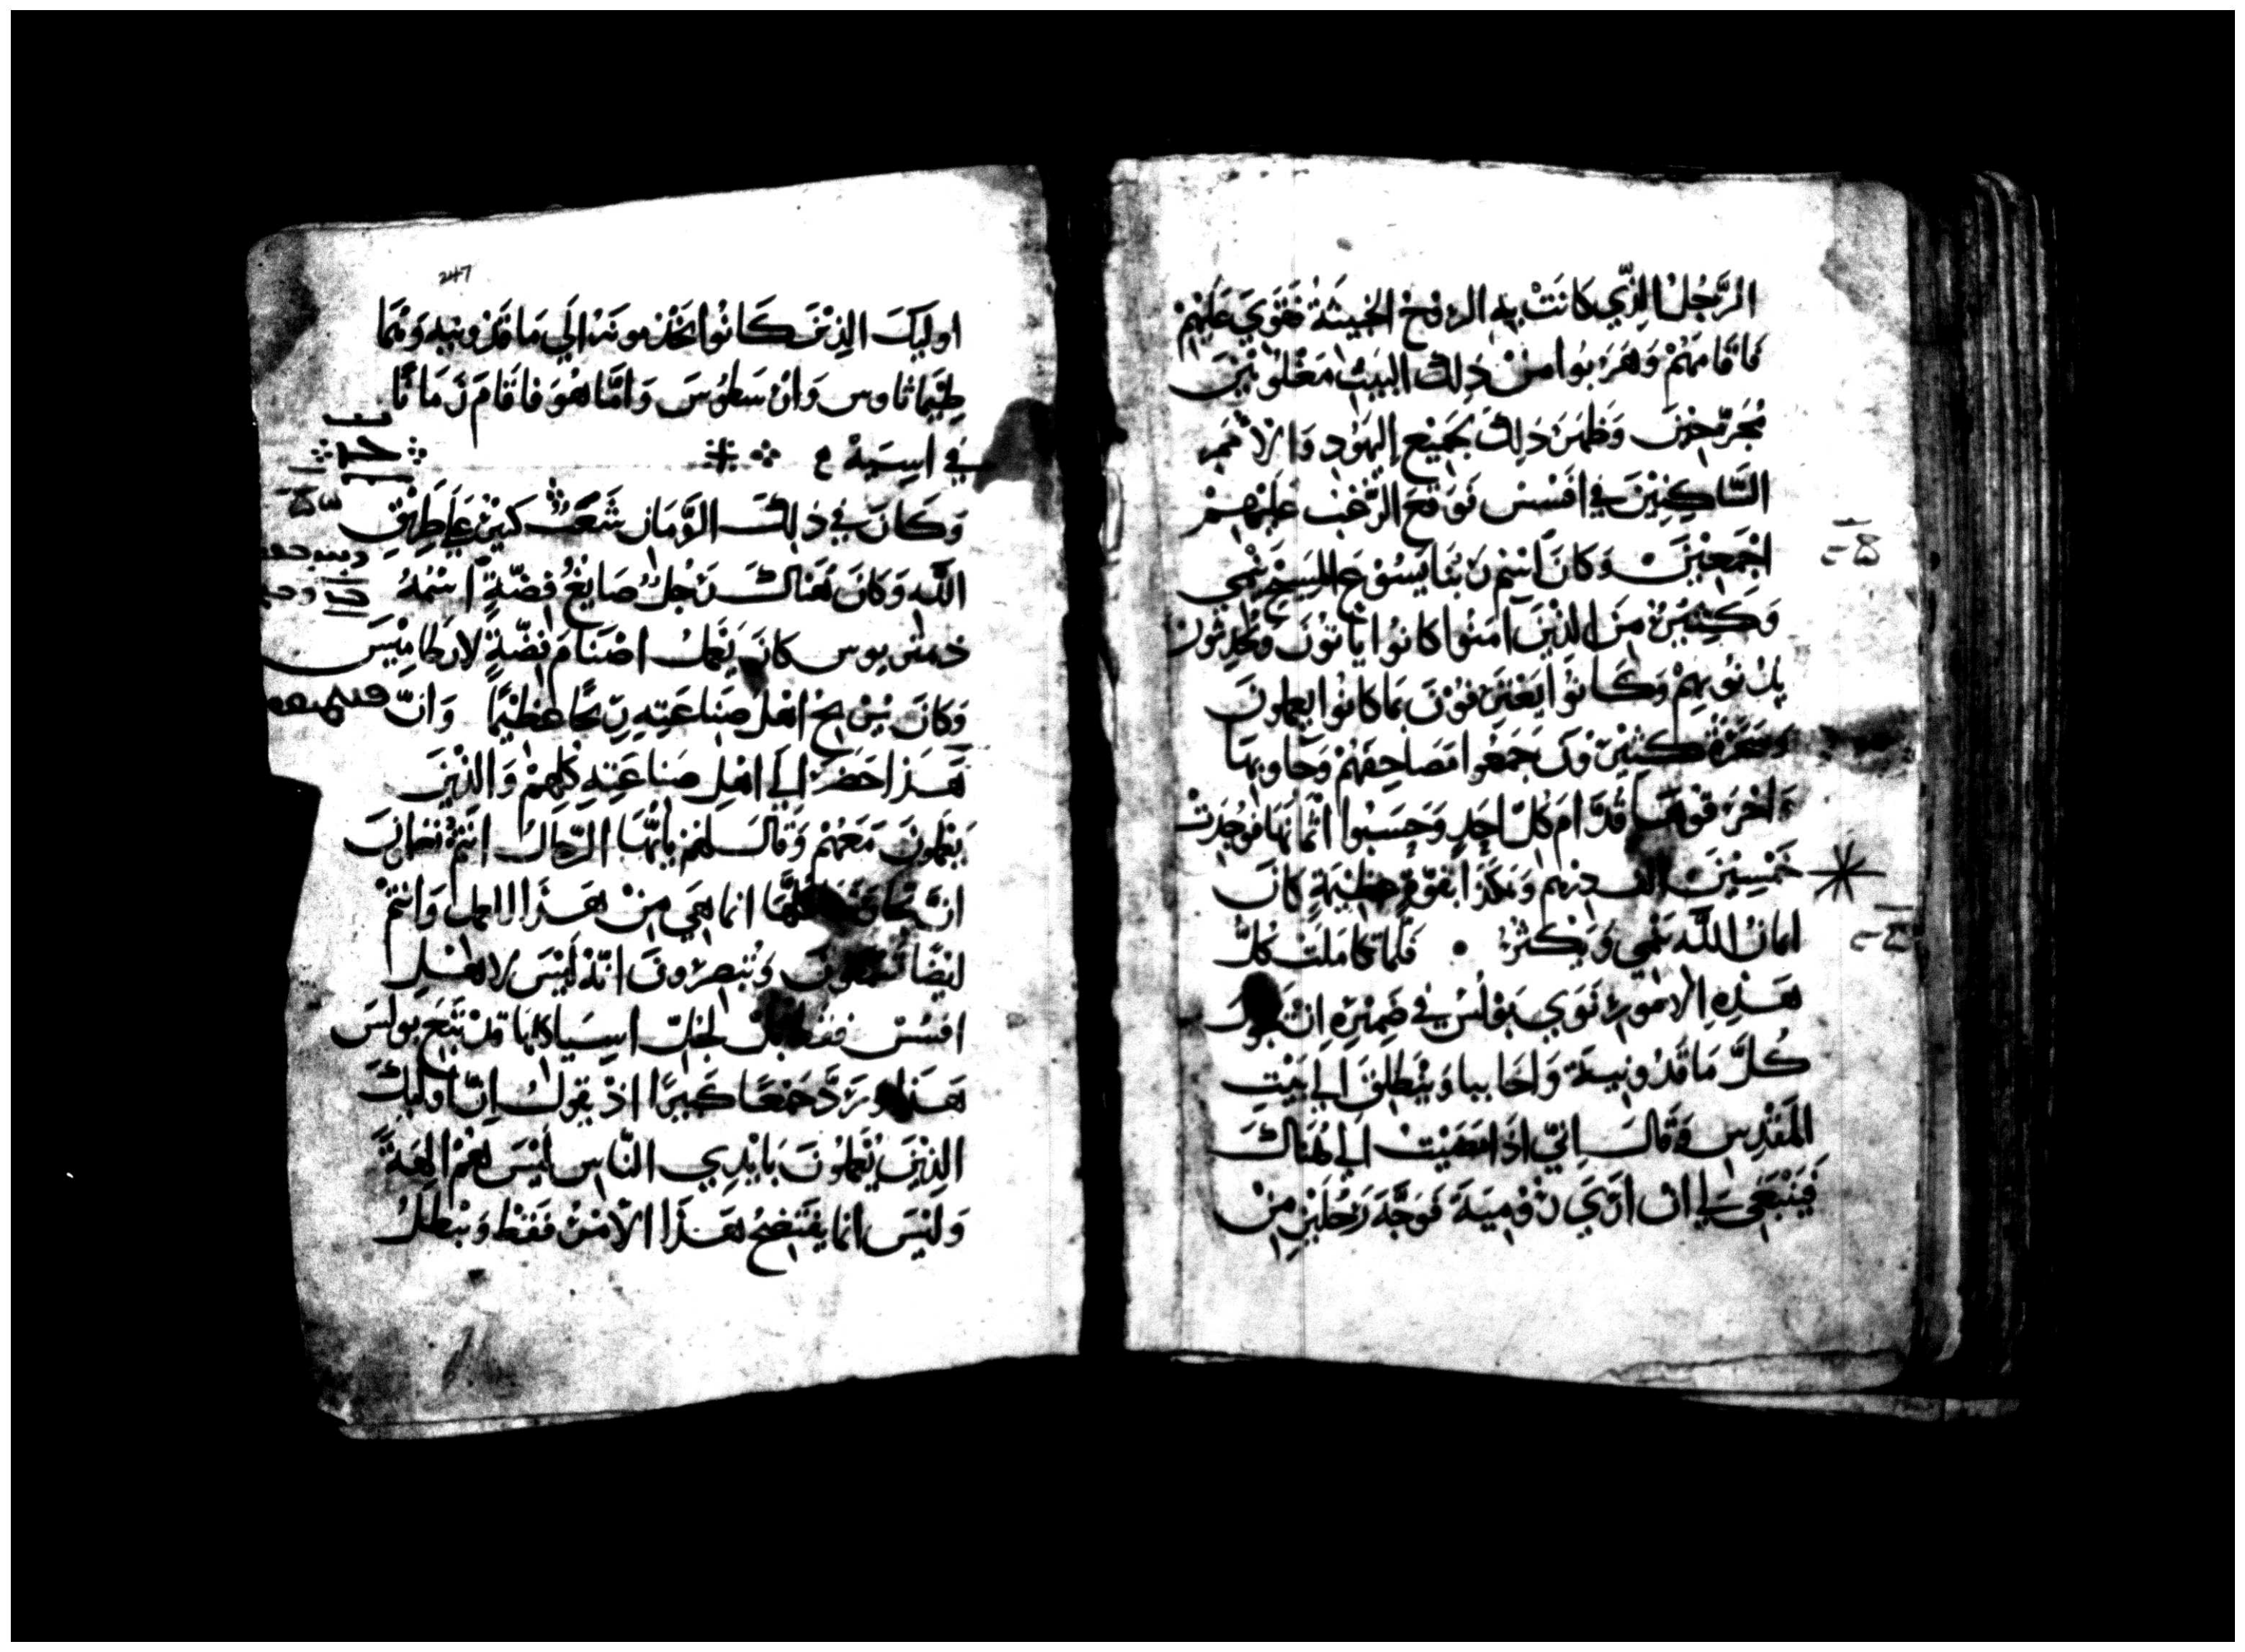 الرَّجُلُ الَّذِي كَانَتْ بِهِ الرُوْحُ الخَبِيثَةُ فَقَوِيَ عَلَيْهِمْ
فاقامَهُمْ وَهَرَبُوا مِنْ ذلِكَ البَيْتِ مَغْلُوبْيْنَ
مُجَرَّحِيْنَ وَظَهَرَ ذلِكَ لِجَمِيْعِ اليَهُوْدِ وَالاُمَمِ
السَّاكِنِيْنَ فِي افَسُسْ فَوَقَعَ الرُّعْبُ عَلَيْهِمْ
اجْمَعِيْنَ وَكَانَ اسْمُ رَبِّنا يَسُوْعَ المَسِيْحِ يَنْمِي
وَكَثِيْرٌ مِنَ الذيْنَ آمَنُوا كانُوا يأتُوْنَ وَيُحَدِثُوْنَ
بِذُنُوبِهِمْ وَكَانُوا يَعْتَرِفُوْنَ بِمَا كانُوا يعملون
وسَحَرَةٌ كَثِيْرُوْنَ جَمَعُوا مَصَاحِفَهُمْ وَجَاوبِهَا
وَاحْرَقُوْهَا قُدَّامَ كُلِّ احَدٍ وَحَسِبُوا اثْمَانَهَا فَوُجِدَتْ
خَمْسِيْنَ الف دِرْهِمٍ وَهَكَذَا بِقُوَّةٍ عَظِيْمَةٍ كانَ
ايمانُ اللّه يَنْمِي وَيَكْثُرُ • فَلَمّا كَامَلَتْ كُلُّ
هَذِهِ الاُمُوْرِ نَوَى بَوْلُسُ فِي ضَمِيْرِهِ انْ يَجُولَ
كُلَّ مَاقَدُونِيَةَ وَاخَاييا وَيَنْطَلِقَ الى بَيْتِ
المَقْدِسِ وَقَالَ انّي اذَا مَضَيْتُ الى هُنَاكَ
فَيَنْبَغِي لِي انْ ارَى رُوْمِيَةَ فَوَجَّهَ رَجُلَيْنِ مِنْ
247
اوليكَ الذِيْنَ كَانُوا يَخْدُمونَهُ الَى مَاقَدُونِيه وَهُمَا
طِيْمَاثاوس وَارَسْطُوسَ وَامَّا هُوَ فاقَامَ زَمَانًا
فِي اسِيَةْ
وَكَانَ في ذلِكَ الزَّمَانِ شَغَبٌ كَثِيْرٌ عَلَى طَرِيْقِ
اللّه وَكَانَ هُنَاكَ رَجُلٌ صَايِغُ فِضَّةٍ اسْمُهُ
دمتريوس كانَ يَعْمَلُ اصْنَامَ فِضَّةٍ لارطامِيْسَ
وَكَانَ يُرْبِحُ اهْلَ صِنَاعَتِهِ رِبْحًا عَظِيْمًا وَانّ
هَذَا حَضَرَ الى اهْلِ صِناعَتِهِ كُلِّهِمْ وَالذيْنَ
يَعْمَلُونَ مَعَهُمْ وَقَالَ لَهُمْ يا ايُّهَا الرِّجَالُ انْتُمْ تَعْلَمُونَ
انَّ كُلَّهَا انما هِيَ مِنْ هَذَا العمل وَانْتُمْ
ايْضًا تَسْمَعُونَ وَتُبْصِرُونَ انّهُ لَيْسَ لاهْلِ
افسُسْ فَقَطْ لِجُلِّ اسِيَا كلها قَدْ بَوْلُسَ
هَذَا وَرَدَّ جَمْعًا كَبِيرًا اذْ يَقُولُ انّ اوليكَ
الذِيْنَ يُعْمَلُونَ بايْدِي النَّاسِ لَيْسَ هُمْ الِهَةً
وَلَيْسَ انما يَفْتَضِحُ هَذَا الأَمْرُ فَقَطْ وَيَبْطُلُ